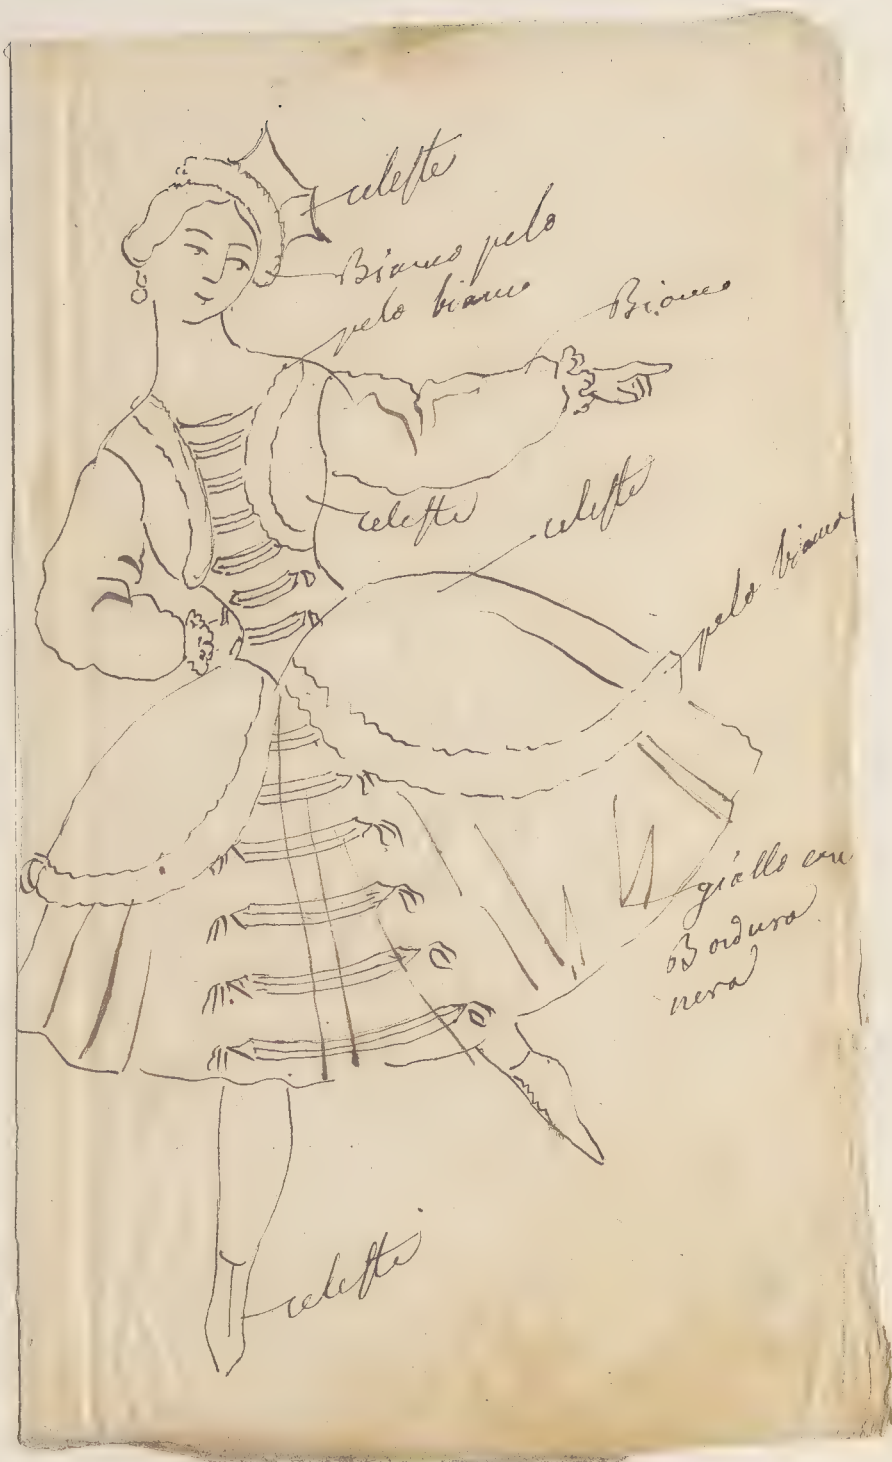 celeste
Bianco pelo
pelo bianco
Bianco
celeste
celeste
pelo bianco
giallo con
Bordura
nera
celesti